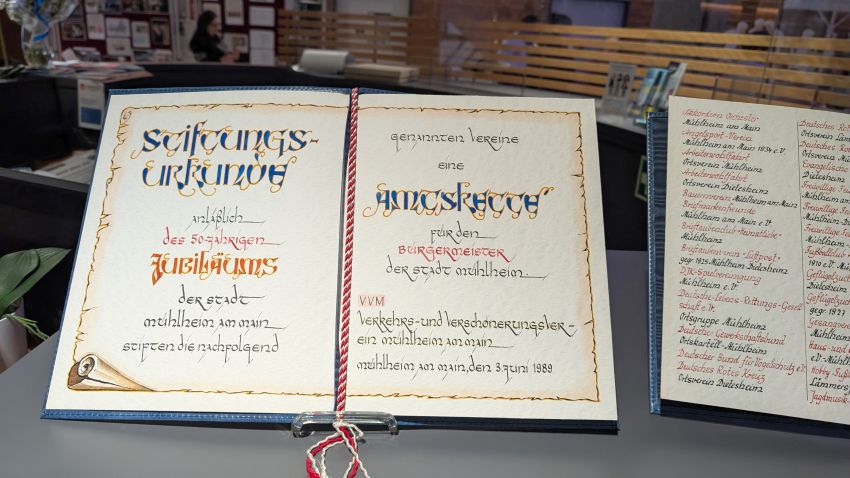 Stiftungs-
urkunde
anläßlich
des 50-jährigen
Jubiläums
der Stadt
Mühlheim am Main
stiften die nachfolgend
genannten Vereine
eine
Amtskette
für den
Bürgermeister
der Stadt Mühlheim.
VVM
Verkehrs- und Verschönerungsver-
ein Mühlheim am Main
Mühlheim am Main, den 3. Juni 1989
Akkordeon Orchester
Mühlheim am Main
Angelsport-Verein
Mühlheim am Main 1934 e.V.
Arbeiterwohlfahrt
Ortsverein Mühlheim
Arbeiterwohlfahrt
Ortsverein Dietesheim
Bauernverein Mühlheim am Main
Briefmarkenfreunde
Mühlheim am Main e.V.
Brieftaubenclub "Heimatliebe"
Mühlheim
Brieftaubenverein "Luftpost"
gegr. 1925 Mühlheim-Dietesheim
DJK-Spielvereinigung
Mühlheim e.V.
Deutsche-Lebens-Rettungs-Gesell-
schaft e.V.
Ortsgruppe Mühlheim
Deutsche-Gewerkschaftsbund
Ortskartell Mühlheim
Deutscher Bund für Vogelschutz e.V.
Deutsches Rotes Kreuz
Ortsverein Dietesheim
Deutsches Rot
Ortsverein Läm
Deutsches Ro
Ortsverein Mü
Evangelische
Dietesheim
Freiwillige Feu
Mühlheim-D
Freiwillige Fe
Mühlheim-L
Freiwillige Fe
Mühlheim
Fußballclub "
1910 e.V. M
Geflügelzucht
Dietesheim
Geflügelzuch
gegr. 1927
Gesangverei
Mühlheim
Haus- und
e.V. Mühlhei
Hobby-Fußb
Lämmers
Jagdmusik-